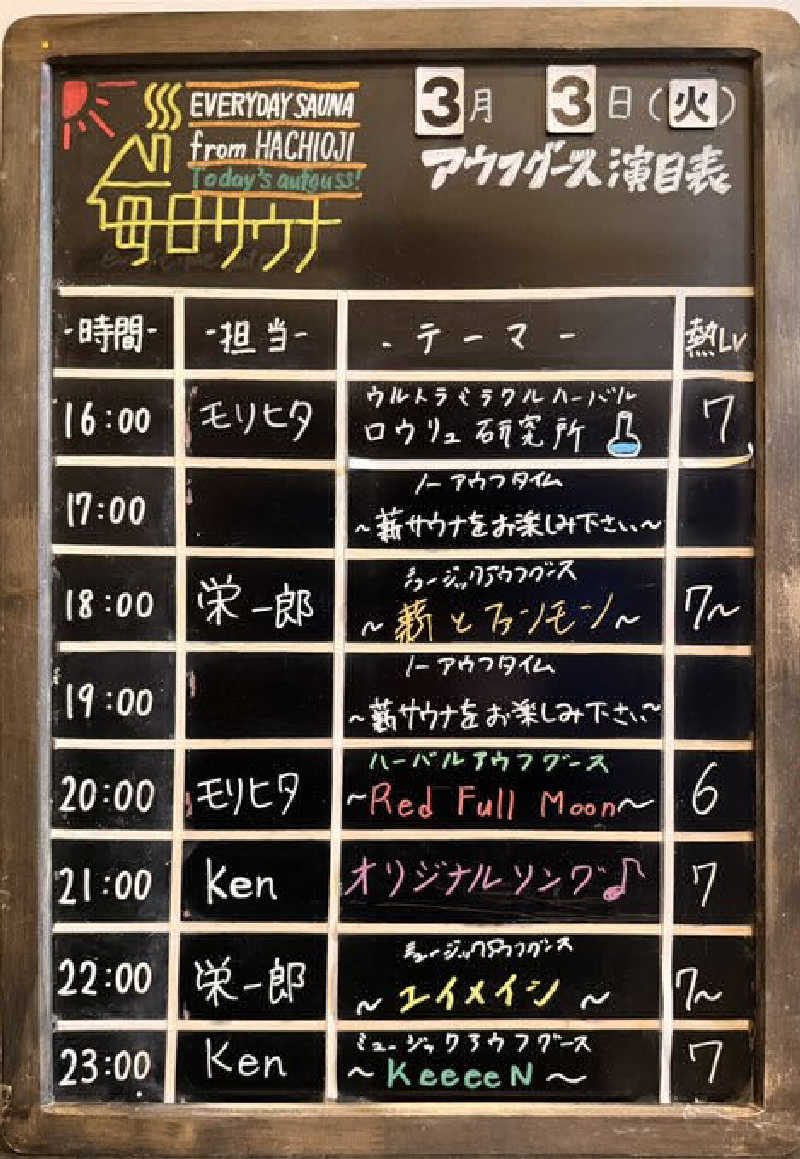 EVERYDAY SAUNA
from HACHIOJI
Today's aufguss!
毎日サウナ
3月 3日(火)
アウフグース 演目表
-時間- -担当- -テーマー 熱LV
16:00 モリヒタ ウルトラミラクルハーバル 7
ロウリュ研究所
17:00 ノーアウフタイム
~薪サウナをお楽しみ下さい~
18:00 栄一郎 ミュージックアウフグース 7~
~薪とファンモン~
19:00 ノーアウフタイム
~薪サウナをお楽しみ下さい~
20:00 モリヒタ ハーバルアウフグース 6
~Red Full Moon~
21:00 Ken オリジナルソング♪ 7
22:00 栄一郎 ミュージックアウフグース 7~
~エイメイン~
23:00 Ken ミュージックアウフグース 7
~KeeeeN~